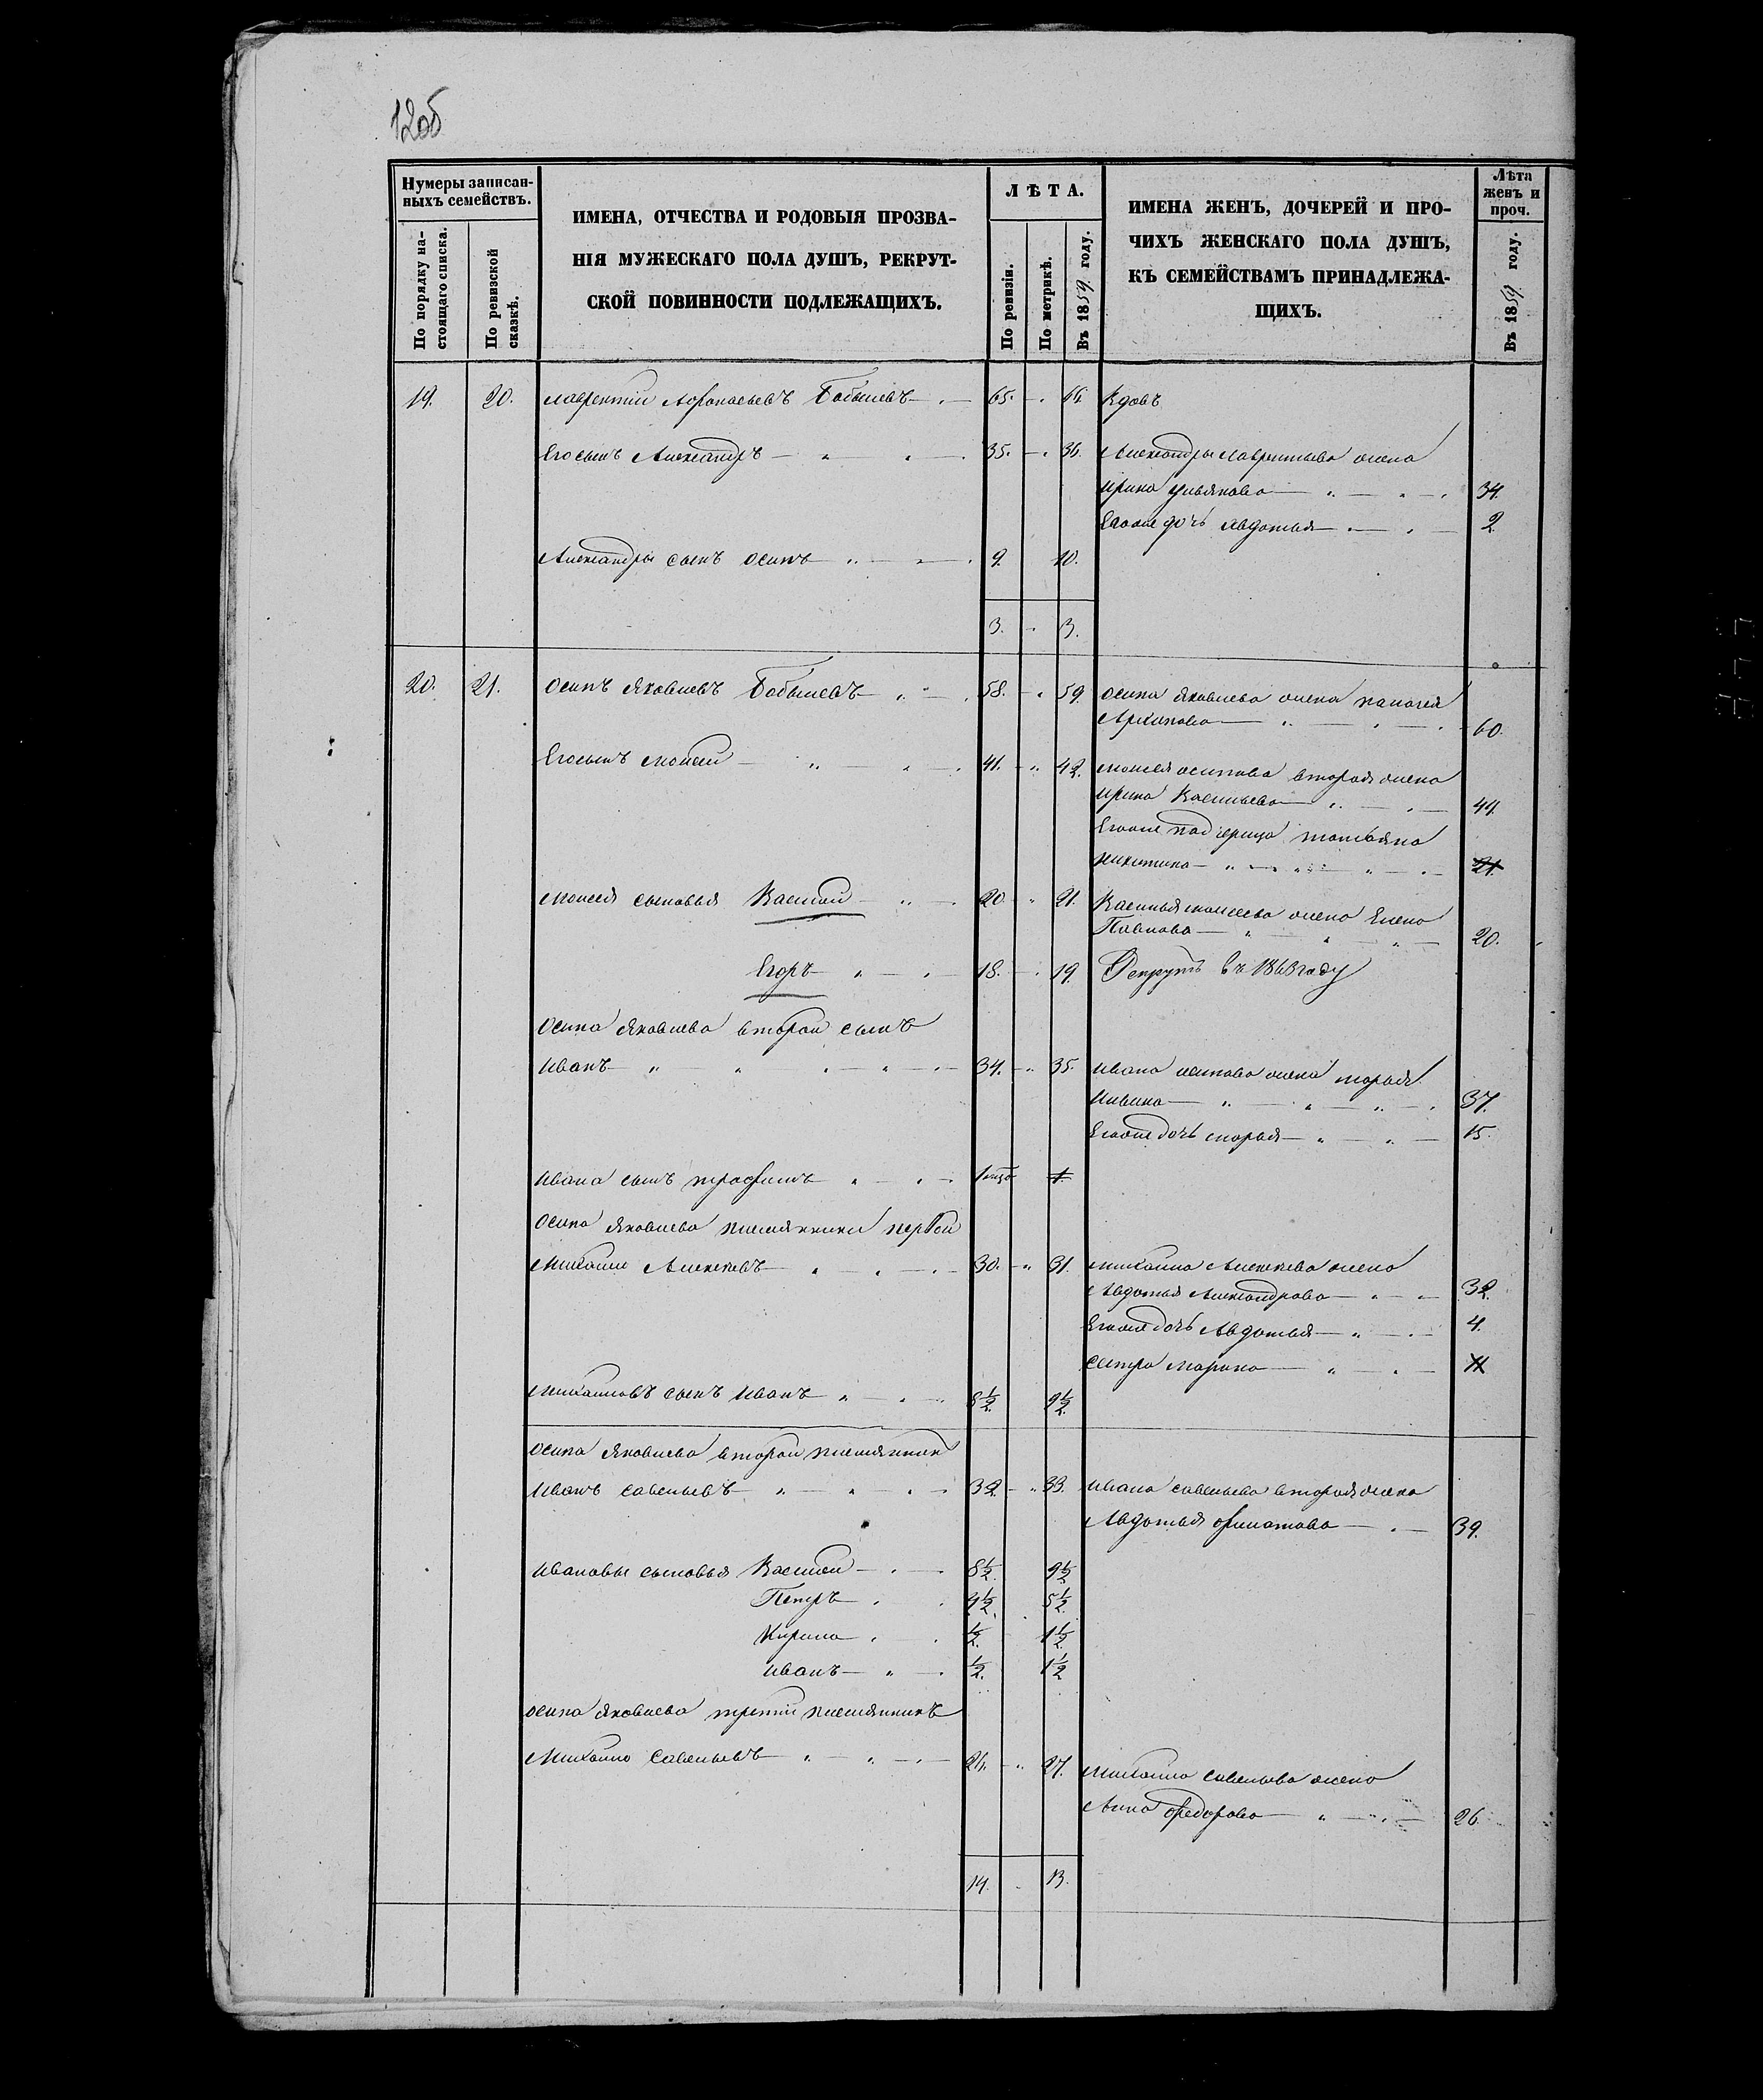 12об
Нумеры записан-
ныхъ семействъ.
По порядку на-
стоящаго списка.
По ревизской
сказкѣ.
ИМЕНА, ОТЧЕСТВА И РОДОВЫЯ ПРОЗВА-
НІЯ МУЖЕСКАГО ПОЛА ДУШЪ, РЕКРУТ-
СКОЙ ПОВИННОСТИ ПОДЛЕЖАЩИХЪ.
ЛѢТА.
По ревизіи.
По метрикѣ.
Въ 1859 году.
ИМЕНА ЖЕНЪ, ДОЧЕРЕЙ И ПРО-
ЧИХЪ ЖЕНСКАГО ПОЛА ДУШЪ,
КЪ СЕМЕЙСТВАМЪ ПРИНАДЛЕЖА-
ЩИХЪ.
Лѣта
женъ и
проч.
Въ 1859 году.
19. 20. Лаврентій Афонасьевъ Бобылевъ 65. 66. Вдовъ
Его сынъ Александръ 35. 36. Александры Лаврентьева жена
Ирина 34.
Его же дочь Авдотья 2
Александры сынъ Осипъ 9. 10.
3. 3.
20. 21. Осипъ Яковлевъ Бобылевъ 58. 59. Осипа Яковлева жена
Архипова 60.
Его сынъ Моисей 41. 42. Моисея Осипова вторая жена
Ирина Васильева 44.
Его же падчерица Татьяна
Никитина 21.
Моисея сыновья Василей 20. 21. Василья Моисеева жена Елена
Павлова 20.
Егоръ 18. 19. Рекрутъ въ 1863 году
Осипа Яковлева второй сынъ
Иванъ 34. 35. Ивана Осипова жена Марья
37.
Его же дочь Марья 15.
Ивана сынъ Трофимъ 1
Осипа Яковлева племянники первой
Михайло Алексеевъ 30. 31. Михайла Алексеева жена
Авдотья Александрова 32.
Его же дочь Авдотья 4.
Сестра Марина
Михайловъ сынъ Иванъ 8½ 9½
Осипа Яковлева второй племянник
Иванъ Савельевъ 32. 33. Ивана Савельева вторая жена
Авдотья Филатова 39.
Ивановы сыновья Василей 8½ 9½
Петръ 4½ 5½
Кирила ½ 1½
Иванъ ½ 1½
Осипа Яковлева третій племянникъ
Михайло Савельевъ 26. 27. Михайла Савельева жена
Анна Федорова 26.
14. 13.